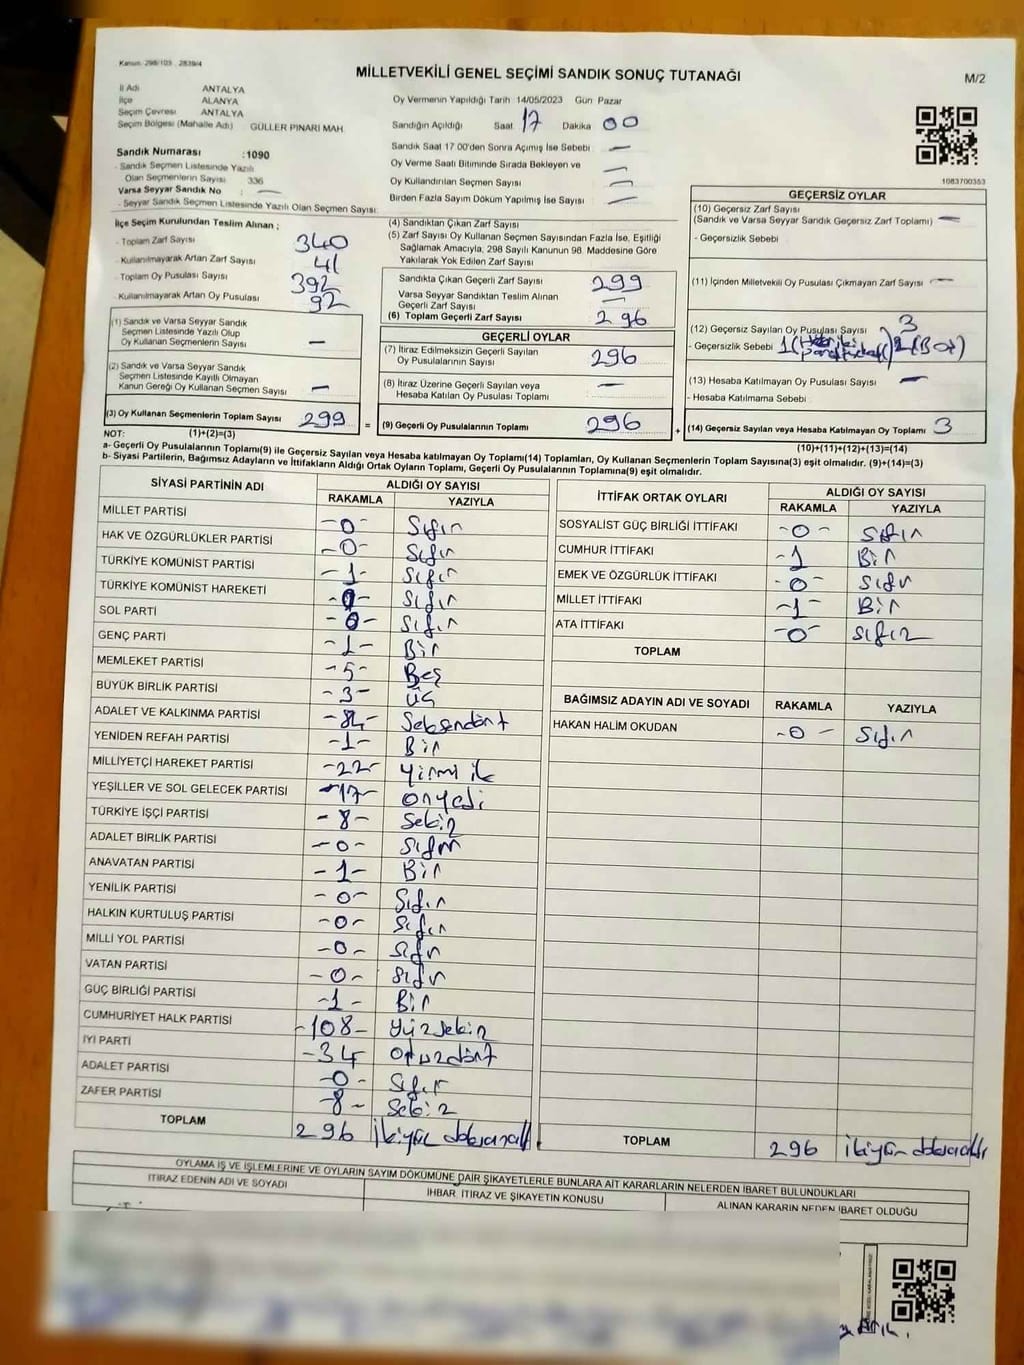 Kanun: 298/103 , 2839/4
MİLLETVEKİLİ GENEL SEÇİMİ SANDIK SONUÇ TUTANAĞI
M/2
İl Adı ANTALYA
İlçe ALANYA
Seçim Çevresi ANTALYA
Seçim Bölgesi (Mahalle Adı) GÜLLER PINARI MAH.
Sandık Numarası :1090
- Sandık Seçmen Listesinde Yazılı
Olan Seçmenlerin Sayısı 336
Varsa Seyyar Sandık No : —
- Seyyar Sandık Seçmen Listesinde Yazılı Olan Seçmen Sayısı:
Oy Vermenin Yapıldığı Tarih 14/05/2023 Gün Pazar
Sandığın Açıldığı Saat 17 Dakika 00
Sandık Saat 17 00'den Sonra Açımış İse Sebebi —
Oy Verme Saati Bitiminde Sırada Bekleyen ve —
Oy Kullandırılan Seçmen Sayısı —
Birden Fazla Sayım Döküm Yapılmış İse Sayısı —
1083700353
İlçe Seçim Kurulundan Teslim Alınan ;
- Toplam Zarf Sayısı 340
- Kullanılmayarak Artan Zarf Sayısı 41
- Toplam Oy Pusulası Sayısı 392
- Kullanılmayarak Artan Oy Pusulası 92
(1) Sandık ve Varsa Seyyar Sandık
Seçmen Listesinde Yazılı Olup
Oy Kullanan Seçmenlerin Sayısı —
(2) Sandık ve Varsa Seyyar Sandık
Seçmen Listesinde Kayıtlı Olmayan
Kanun Gereği Oy Kullanan Seçmen Sayısı —
(3) Oy Kullanan Seçmenlerin Toplam Sayısı 299 =
(1)+(2)=(3)
(4) Sandıktan Çıkan Zarf Sayısı
(5) Zarf Sayısı Oy Kullanan Seçmen Sayısından Fazla İse, Eşitliği
Sağlamak Amacıyla, 298 Sayılı Kanunun 98. Maddesine Göre
Yakılarak Yok Edilen Zarf Sayısı
Sandıkta Çıkan Geçerli Zarf Sayısı 299
Varsa Seyyar Sandıktan Teslim Alınan
Geçerli Zarf Sayısı —
(6) Toplam Geçerli Zarf Sayısı 296
GEÇERLİ OYLAR
(7) İtiraz Edilmeksizin Geçerli Sayılan
Oy Pusulalarının Sayısı 296
(8) İtiraz Üzerine Geçerli Sayılan veya
Hesaba Katılan Oy Pusulası Toplamı —
(9) Geçerli Oy Pusulalarının Toplamı 296 +
GEÇERSİZ OYLAR
(10) Geçersiz Zarf Sayısı
(Sandık ve Varsa Seyyar Sandık Geçersiz Zarf Toplamı) —
- Geçersizlik Sebebi
(11) İçinden Milletvekili Oy Pusulası Çıkmayan Zarf Sayısı —
(12) Geçersiz Sayılan Oy Pusulası Sayısı 3
- Geçersizlik Sebebi 1 2 (Boş)
(13) Hesaba Katılmayan Oy Pusulası Sayısı —
- Hesaba Katılmama Sebebi
(14) Geçersiz Sayılan veya Hesaba Katılmayan Oy Toplamı 3
(10)+(11)+(12)+(13)=(14)
NOT:
a- Geçerli Oy Pusulalarının Toplamı(9) ile Geçersiz Sayılan veya Hesaba katılmayan Oy Toplamı(14) Toplamları, Oy Kullanan Seçmenlerin Toplam Sayısına(3) eşit olmalıdır. (9)+(14)=(3)
b- Siyasi Partilerin, Bağımsız Adayların ve İttifakların Aldığı Ortak Oyların Toplamı, Geçerli Oy Pusulalarının Toplamına(9) eşit olmalıdır.
SİYASİ PARTİNİN ADI ALDIĞI OY SAYISI
RAKAMLA YAZIYLA
MİLLET PARTİSİ -0- Sıfır
HAK VE ÖZGÜRLÜKLER PARTİSİ -0- Sıfır
TÜRKİYE KOMÜNİST PARTİSİ -1- Sıfır
TÜRKİYE KOMÜNİST HAREKETİ -0- Sıfır
SOL PARTİ -0- Sıfır
GENÇ PARTİ -1- Bir
MEMLEKET PARTİSİ -5- Beş
BÜYÜK BİRLİK PARTİSİ -3- Üç
ADALET VE KALKINMA PARTİSİ -84- Seksendört
YENİDEN REFAH PARTİSİ -1- Bir
MİLLİYETÇİ HAREKET PARTİSİ -22- Yirmi ik
YEŞİLLER VE SOL GELECEK PARTİSİ -17- Onyedi
TÜRKİYE İŞÇİ PARTİSİ -8- Sekiz
ADALET BİRLİK PARTİSİ -0- Sıfır
ANAVATAN PARTİSİ -1- Bir
YENİLİK PARTİSİ -0- Sıfır
HALKIN KURTULUŞ PARTİSİ -0- Sıfır
MİLLİ YOL PARTİSİ -0- Sıfır
VATAN PARTİSİ -0- Sıfır
GÜÇ BİRLİĞİ PARTİSİ -1- Bir
CUMHURİYET HALK PARTİSİ -108- Yüzsekiz
İYİ PARTİ -34 Otuzdört
ADALET PARTİSİ -0- Sıfır
ZAFER PARTİSİ -8- Sekiz
TOPLAM 296 İkiyüz doksanaltı
İTTİFAK ORTAK OYLARI ALDIĞI OY SAYISI
RAKAMLA YAZIYLA
SOSYALİST GÜÇ BİRLİĞİ İTTİFAKI -0- Sıfır
CUMHUR İTTİFAKI -1 Bir
EMEK VE ÖZGÜRLÜK İTTİFAKI -0- Sıfır
MİLLET İTTİFAKI -1- Bir
ATA İTTİFAKI -0- Sıfır
TOPLAM
BAĞIMSIZ ADAYIN ADI VE SOYADI RAKAMLA YAZIYLA
HAKAN HALİM OKUDAN -0- Sıfır
TOPLAM 296 ikiyüz doksanaltı
OYLAMA İŞ VE İŞLEMLERİNE VE OYLARIN SAYIM DÖKÜMÜNE DAİR ŞİKAYETLERLE BUNLARA AİT KARARLARIN NELERDEN İBARET BULUNDUKLARI
İTİRAZ EDENİN ADI VE SOYADI İHBAR, İTİRAZ VE ŞİKAYETİN KONUSU ALINAN KARARIN NEDEN İBARET OLDUĞU